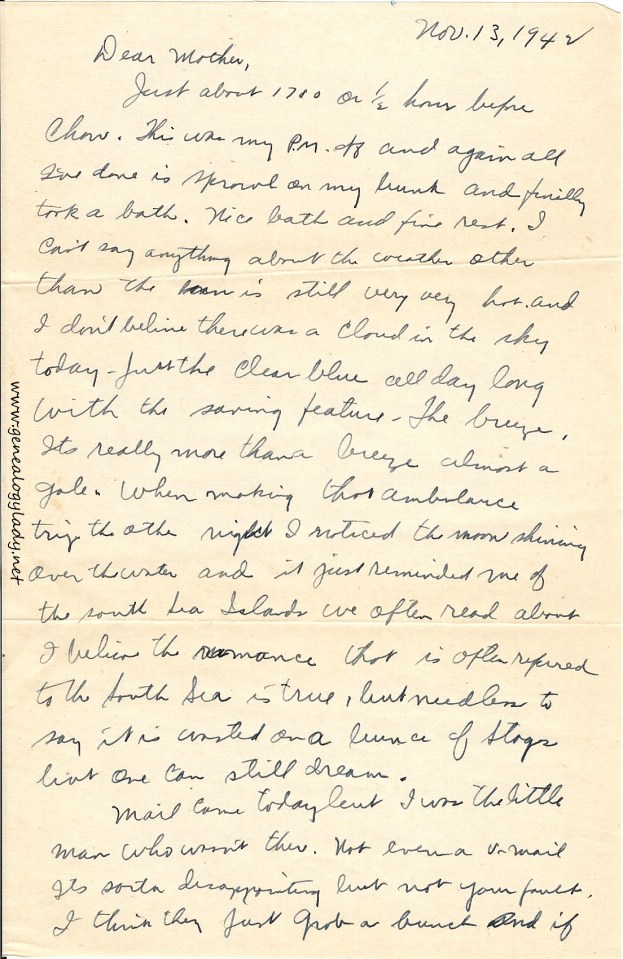 Nov. 13, 1942
Dear Mother,
Just about 1700 or 1/2 hour before
Chow. This was my P.M. off and again all
I've done is sprawl on my bunk and finally
took a bath. Nice bath and fine rest. I
can't say anything about the weather other
than the is still very very hot and
I don't believe there was a cloud in the sky
today - Just the clear blue all day long
with the saving feature - The breeze.
Its really more than a breeze almost a
gale. When making that ambulance
trip the other night I noticed the moon shining
over the water and it just reminded me of
the South Sea Islands we often read about
I believe the romance that is often refured
to the South Sea is true, but needless to
say it is wasted on a bunce of stags
but one can still dream.
Mail came today but I was the little
man who wasn't ther. Not even a v-mail
Its sorta disappointing but not your fault.
I think they just grab a bunch and if
www.genealogylady.net